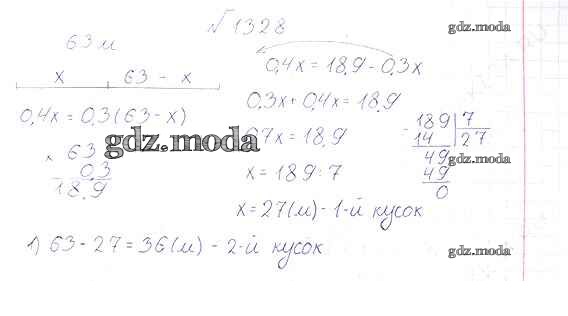 №1328
gdz.moda
63 м
x 63 - x
0,4x = 0,3(63-x)
× 63
0,3
18,9
0,4x = 18,9 - 0,3x
0,3x + 0,4x = 18,9
gdz.moda
0,7x = 18,9
x = 189:7
x = 27(м) - 1-й кусок
- 189 | 7
14 27
49
gdz.moda
49
0
1) 63 - 27 = 36(м) - 2-й кусок
gdz.moda